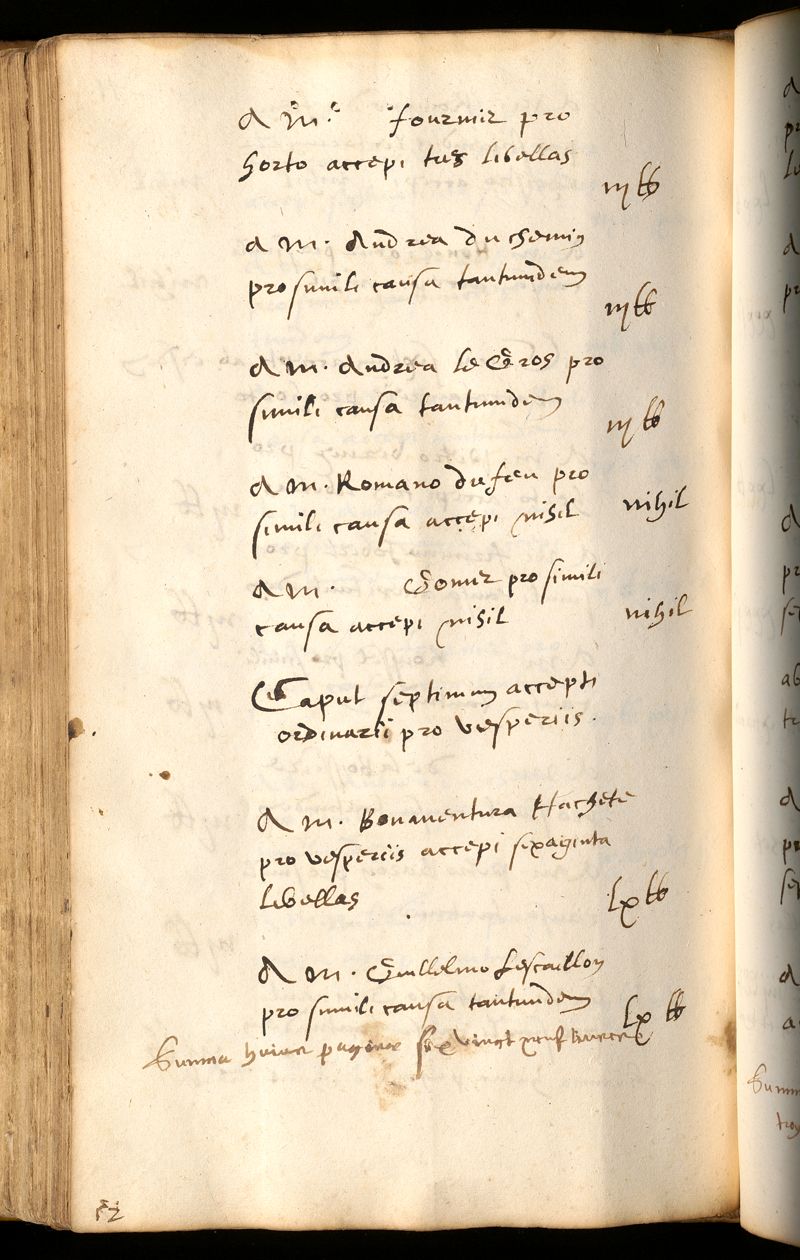 A M.e fournier pro
horto accepi tres libellas
iij ℔
A M. Andrea duchemin
pro simili causa tantumdem
iij ℔
A M. Andrea le Gros pro
simili causa tantumdem
iij ℔
A M. Romano dufeu pro
simili causa accepi nihil nihil
A M. Gomer pro simili
causa accepi nihil nihil
Caput septimum accepti
ordinarii pro vesperiis.
A M. Bonaventura Hachete
pro vesperiis accepi sexaginta
libellas
lx ℔
A M. Guillelmo Lescaillon
pro simili causa tantumdem lx ℔
Summa huius paginae six vingt neuf
52